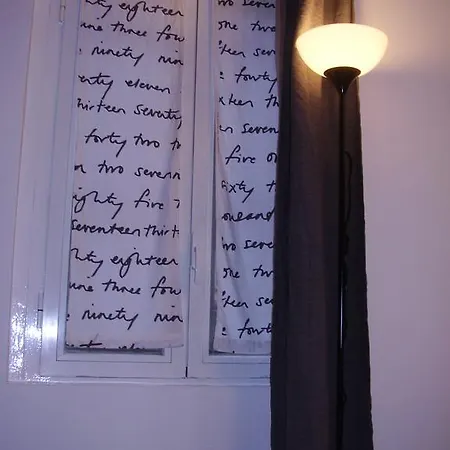 ty eighteen
ne three fou
ninety nin
enty eleven
thirteen seventy
forty two to
n two seven
ighty five
seventeen thirte
ghty eighteen
une three fou
ninety nin
two seven
one two
rteen se
fourty
ixteen th
rteen seve
five on
sixty t
two seve
one two
teen sev
fourt